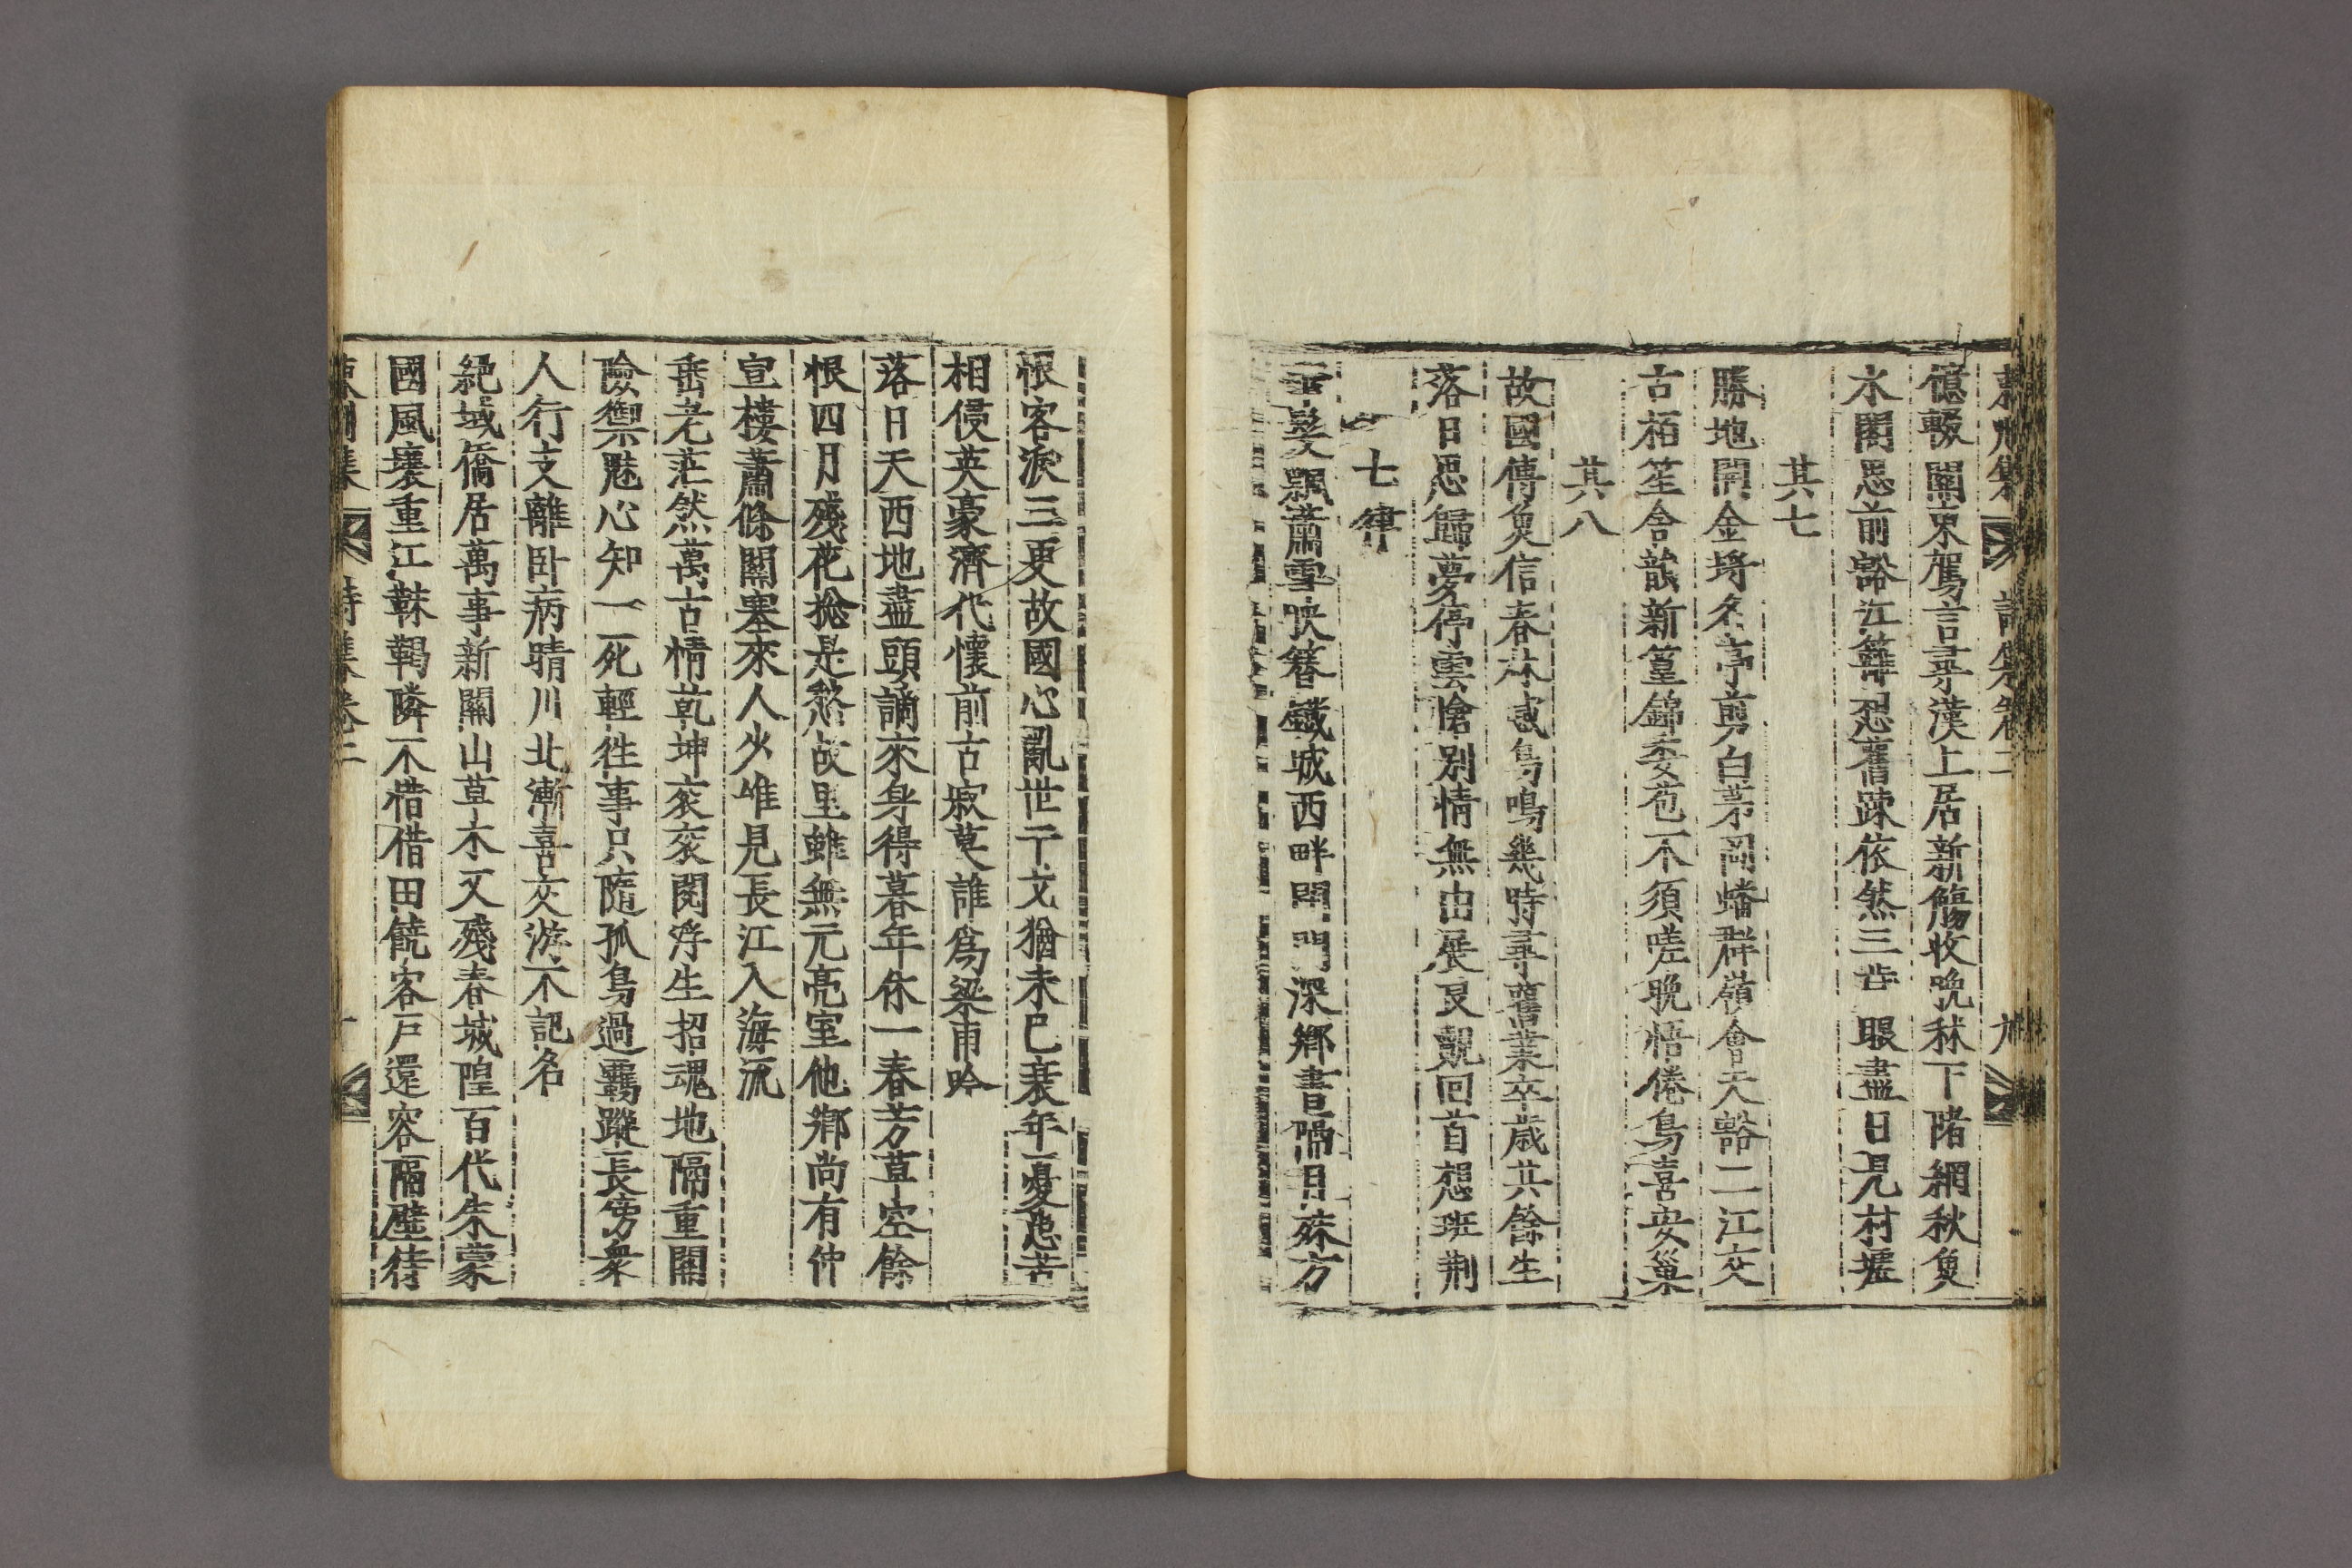 億輟關東駕言尋漢上居新觴收晩秫下陼網秋魚
水閣思前豁江籬忍舊踈依然三品眼盡日見村墟
其七
勝地開金埒名亭剪白茅岡蟠群嶺會天豁二江交
古栢笙含韻新篁錦委苞不須嗟晩悟倦鳥喜安巢
其八
故國傳魚信春林感鳥鳴幾時尋舊業卒歲共餘生
落日思歸夢停雲愴別情無由展良覿回首想班荆
七律
雲髮飄蕭雪映簪鐵城西畔閉門深鄕書隔月殊方
恨客淚三更故國心亂世干戈猶未已衰年憂患苦
相侵英豪濟代懷前古寂莫誰爲梁甫吟
落日天西地盡頭謫來身得暮年休一春芳草空餘
恨四月殘花摠是愁故里雖無元亮室他鄕尙有仲
宣樓蕭條關塞來人少唯見長江入海流
垂老茫然萬古情乾坤袞袞閱浮生招魂地隔重關
險禦魅心知一死輕徃事只隨孤鳥過覊蹤長傍衆
人行支離卧病晴川北漸喜交游不記名
絶域僑居萬事新關山草木又殘春城隍百代朱蒙
國風壤重江靺鞨隣不惜借田饒客戶還容隔壁待
東州集 詩集卷二